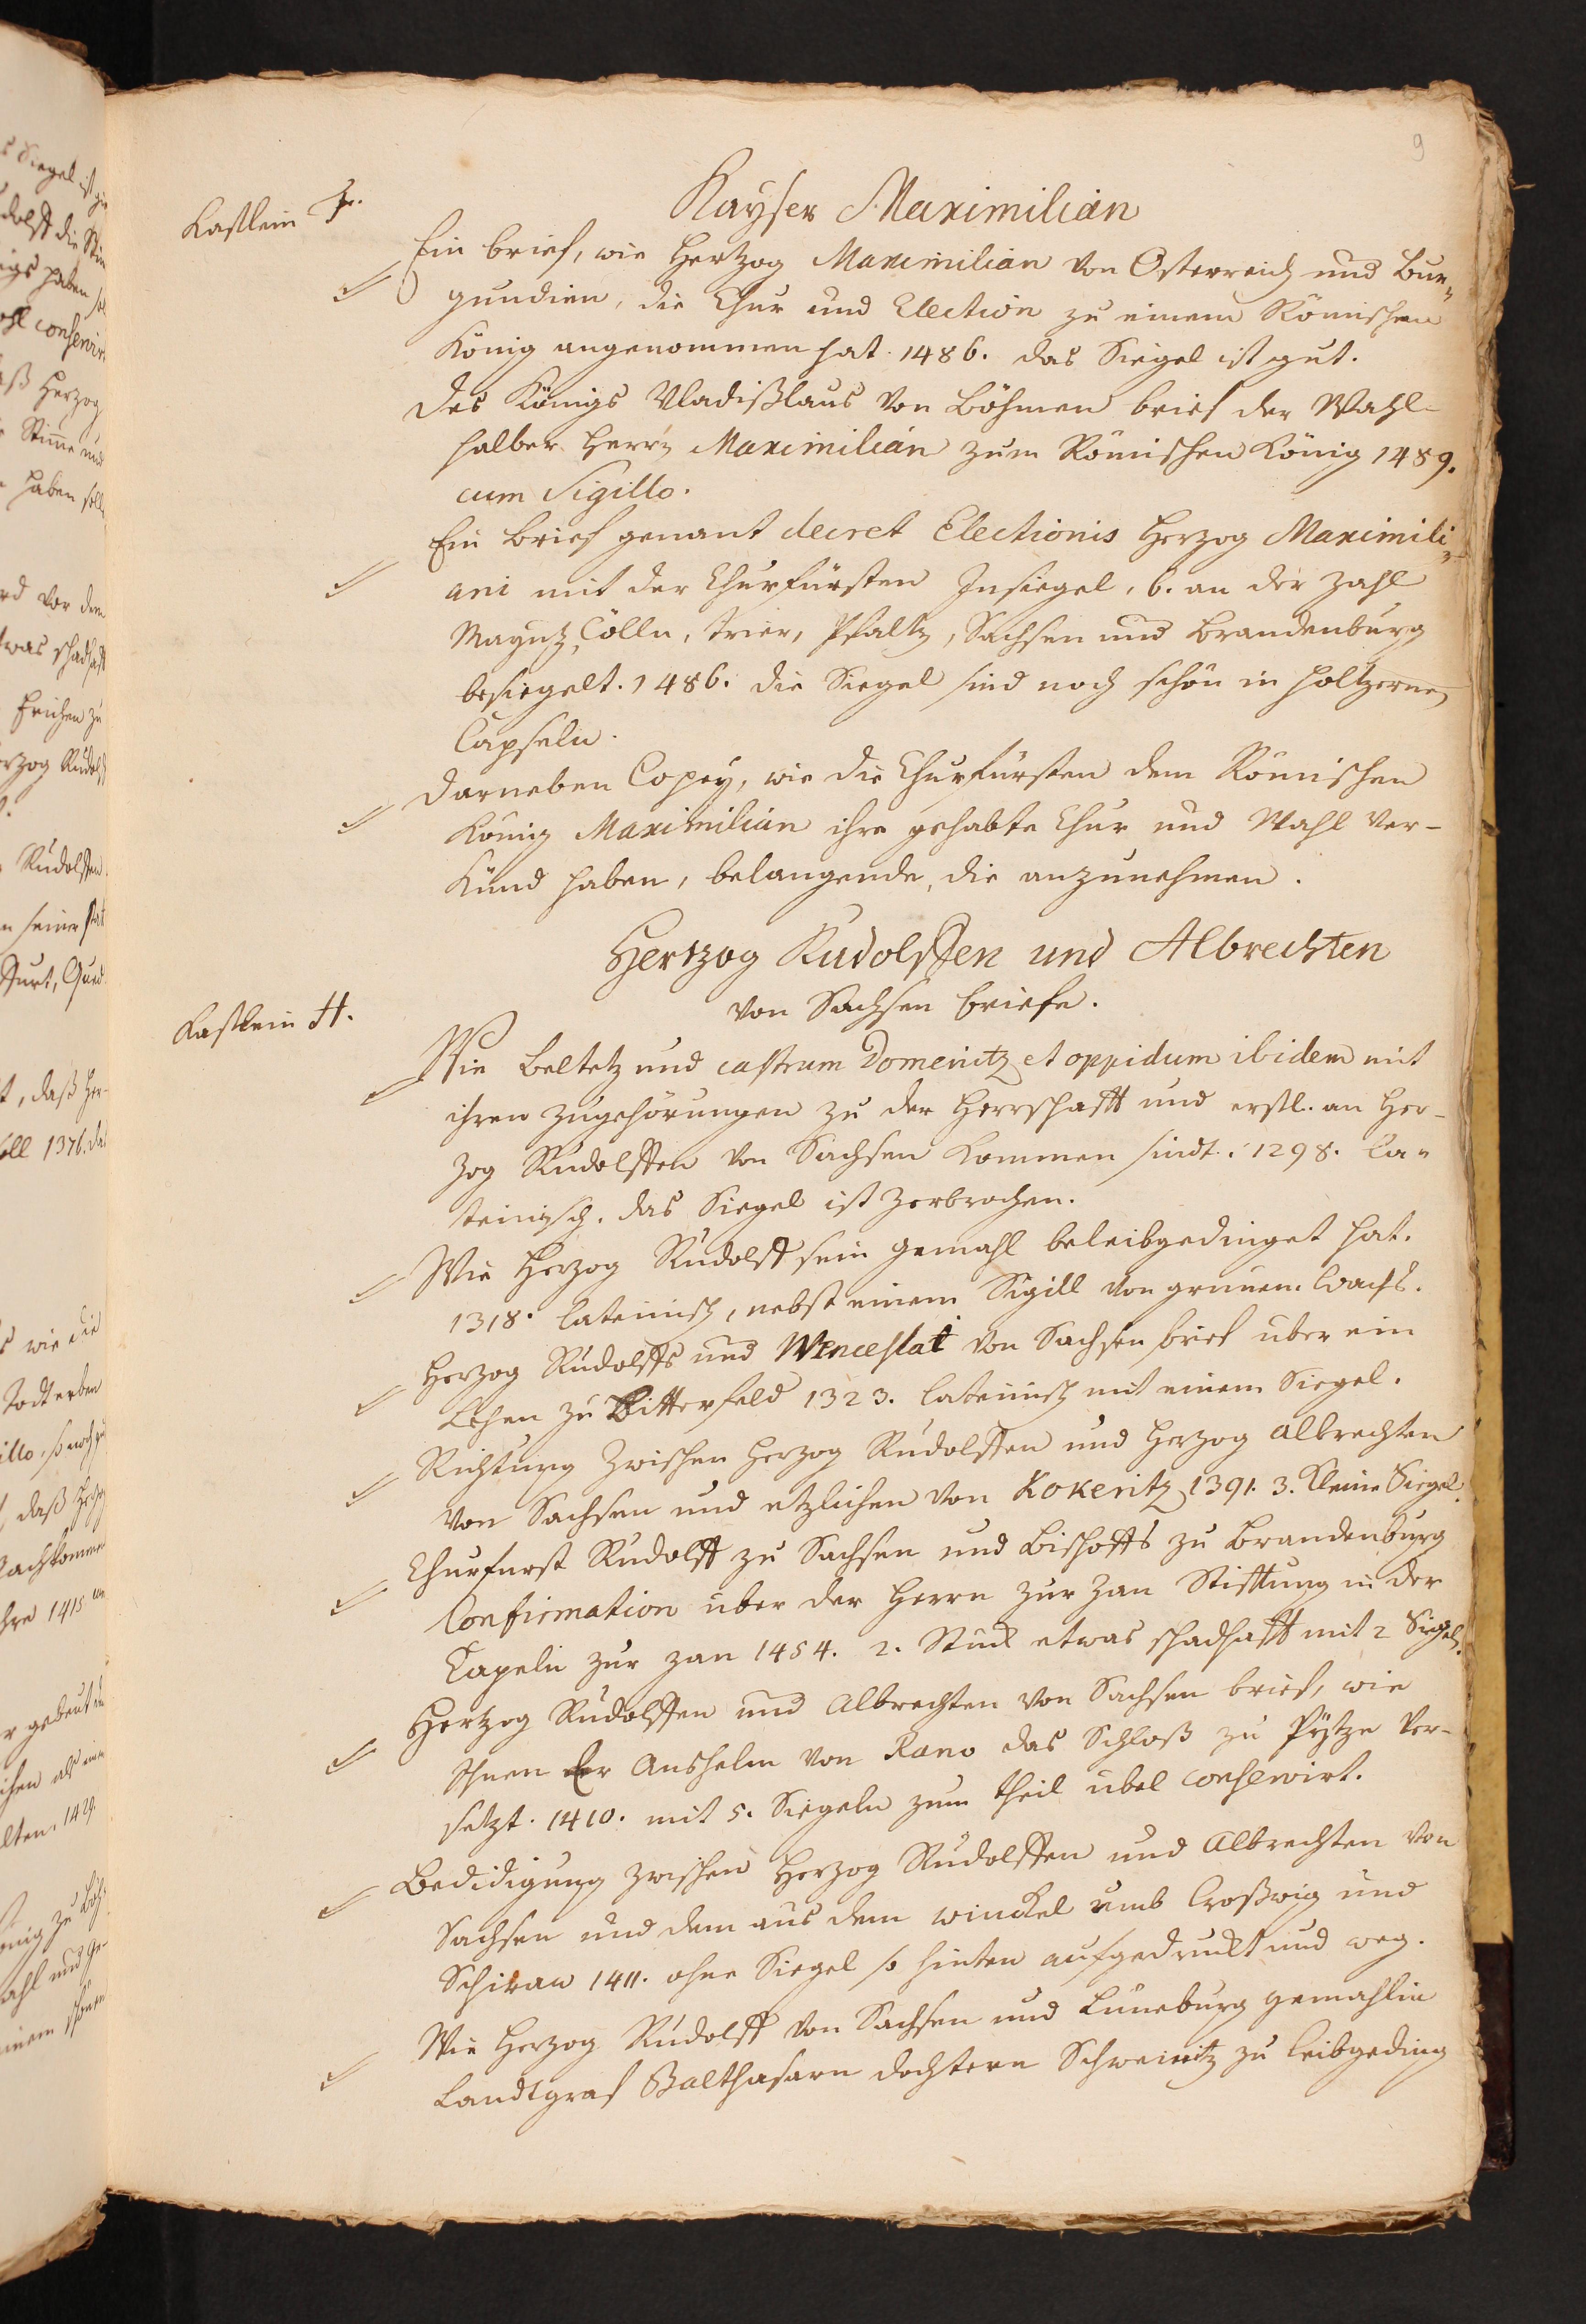 9
Kastlein F.
Kayser Maximilian
Ein brief, wie Hertzog Maximilian von Osterreich und Bur-
gundien, die Chur und Election zu einem Römischen
König angenommen hat. 1486. das Siegel ist gut.
Des Königs Uladißlaus von Böhmen brief der Wahl-
halber Herrn Maximilian zum Römischen König 1489.
cum Sigillo.
Ein Brief genant decret Electionis Herzog Maximili-
ani mit der Churfürsten Insiegel, 6. an der Zahl
Mayntz, Cölln, Trier, Pfaltz, Sachsen und Brandenburg
besiegelt. 1486. die Siegel sind noch schön in holtzernen
Capseln.
Darneben Copey, wie die Churfürsten dem Römischen
König Maximilian ihre gehabte Chur und Wahl ver-
künd haben, belangende, die anzunehmen.
Hertzog Rudolffen und Albrechten
von Sachsen briefe.
Kastlein H.
Wie Beltetz und castrum Domenitz et oppidum ibidem mit
ihren zugehörungen zu der Herrschafft und erstl. an Her-
zog Rudolffen von Sachsen kommen sindt. 1298. La-
teinisch. das Siegel ist zerbrochen.
Wie Herzog Rudolff sein Gemahl beleibgedinget hat.
1318. lateinisch, nebst einem Sigill von grunem Wachs.
Herzog Rudolffs und Wenceslai von Sachsen brief uber ein
Lehen zu Bitterfeld 1323. lateinisch mit einem Siegel.
Richtung zwischen Herzog Rudolffen und Herzog Albrechten
von Sachsen und etzlichen von Kokeritz 1391. 3. kleine Siegel.
Churfurst Rudolff zu Sachsen und Bischoffs zu Brandenburg
Confirmation uber der Herrn zur Zan Stifftung in der
Capeln zur Zan 1454. 2. Stuck etwas schadhafft mit 2 Siegeln.
Hertzog Rudolffen und Albrechten von Sachsen brief, wie
Ihnen Er Anshelm von Rano das Schloß zu Pystze ver-
setzt. 1410. mit 5. Siegeln zum theil übel conservirt.
Bedidigung zwischen Herzog Rudolffen und Albrechten von
Sachsen und dem aus dem Winckel umb Croßwig und
Schirau 1411. ohne Siegel so hinten aufgedruckt und weg.
Wie Herzog Rudolff von Sachsen und Lüneburg gemahlin
Landtgraf Balthasarn dochtern Schweinitz zu leibgeding